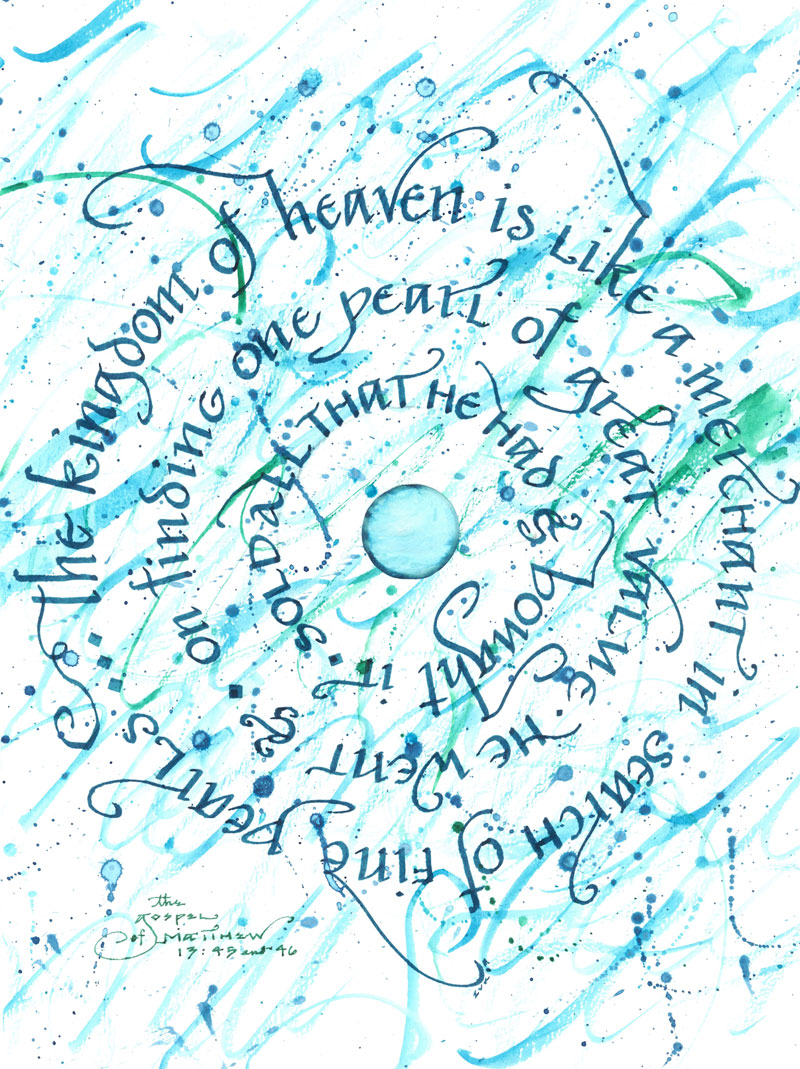 the kingdom of heaven is like a merchant in search of fine pearls:
on finding one pearl of great value. He went &
sold all that he had & bought it.
the
gospel
of Matthew
13:45 and 46